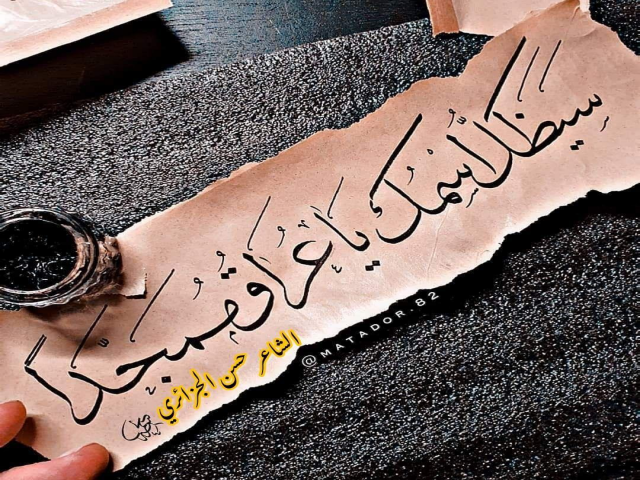 سيظل اسمك يا عراق ممجدا
الشاعر حسن الجزائري
@MATADOR.82